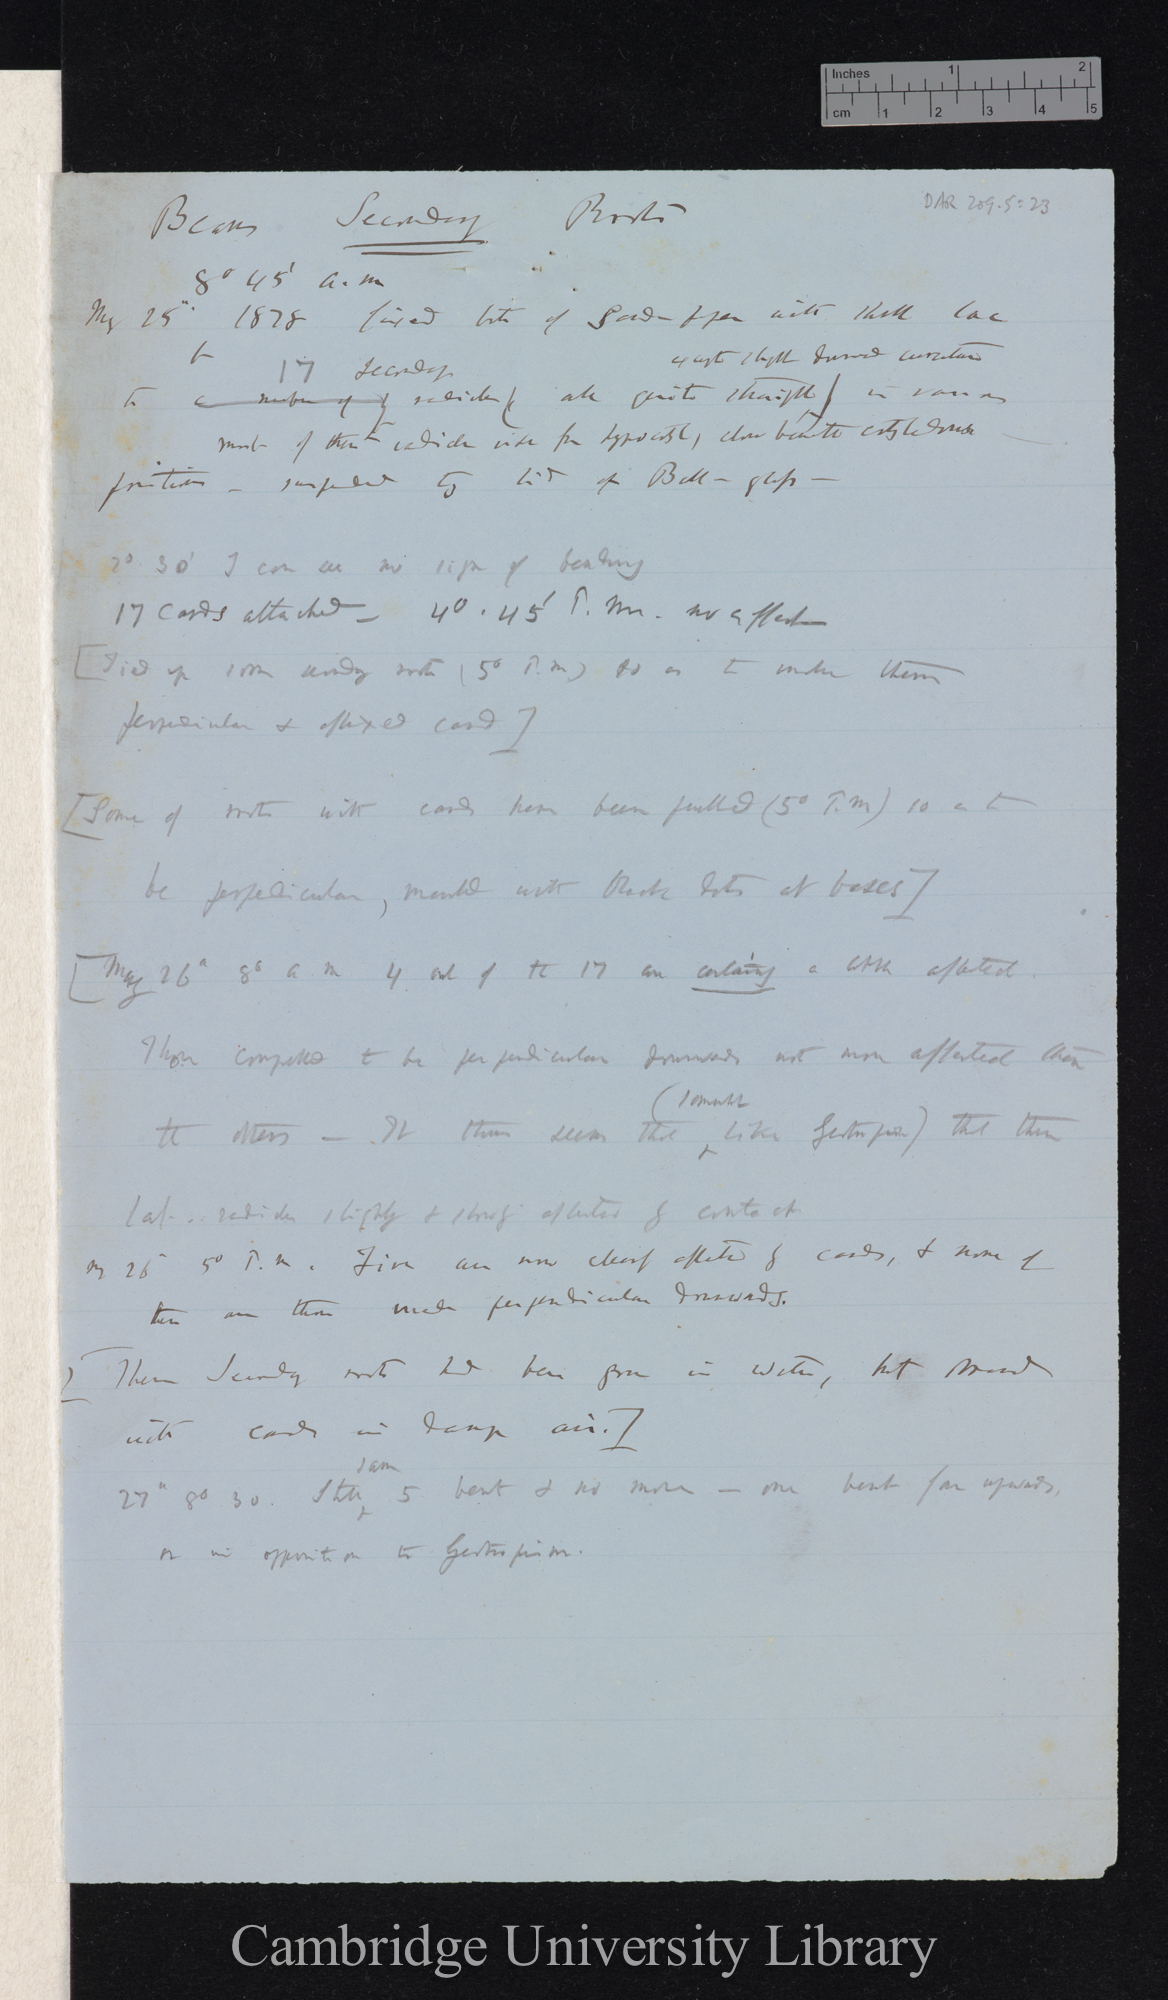 Inches 1 2
cm 1 2 3 4 5
DAR 209.5:23
Beans Secondary Roots
8° 45' a.m
May 25th 1878 fixed bits of Sand-paper with Shell lac
17 secondary except slight downward curvature
to a number of radicles (all quite straight) in various
most of these radicles rise from hypocotyl, close beneath cotyledons
positions — suspended to lid of Bell-glass —
2° 30' I can see no sign of bending
17 Cards attached — 4°. 45' P.m. no effect
[Tied up some secondary roots (5° P.m) so as to make them
perpendicular & affixed card]
[Some of roots with cards have been pulled (5° P.m) so as to
be perpendicular, marked with black dots at bases]
[May 26th 8° a m 4 out of the 17 are certainly a little affected.
Those compelled to be perpendicular downwards not more affected than
(somewhat
the others — It thus seems that like Geotropism) that these
lat.. radicles slightly & affected by contact
May 26th 5° P.m. Five are now clearly affected by cards, & none of
these are those made perpendicular downwards.
[These Secondary roots had been grown in water, but
with cards in damp air.]
same
27th 8° 30. Still 5 bent & no more — one bent far upwards,
or in opposition to Geotropism.
Cambridge University Library